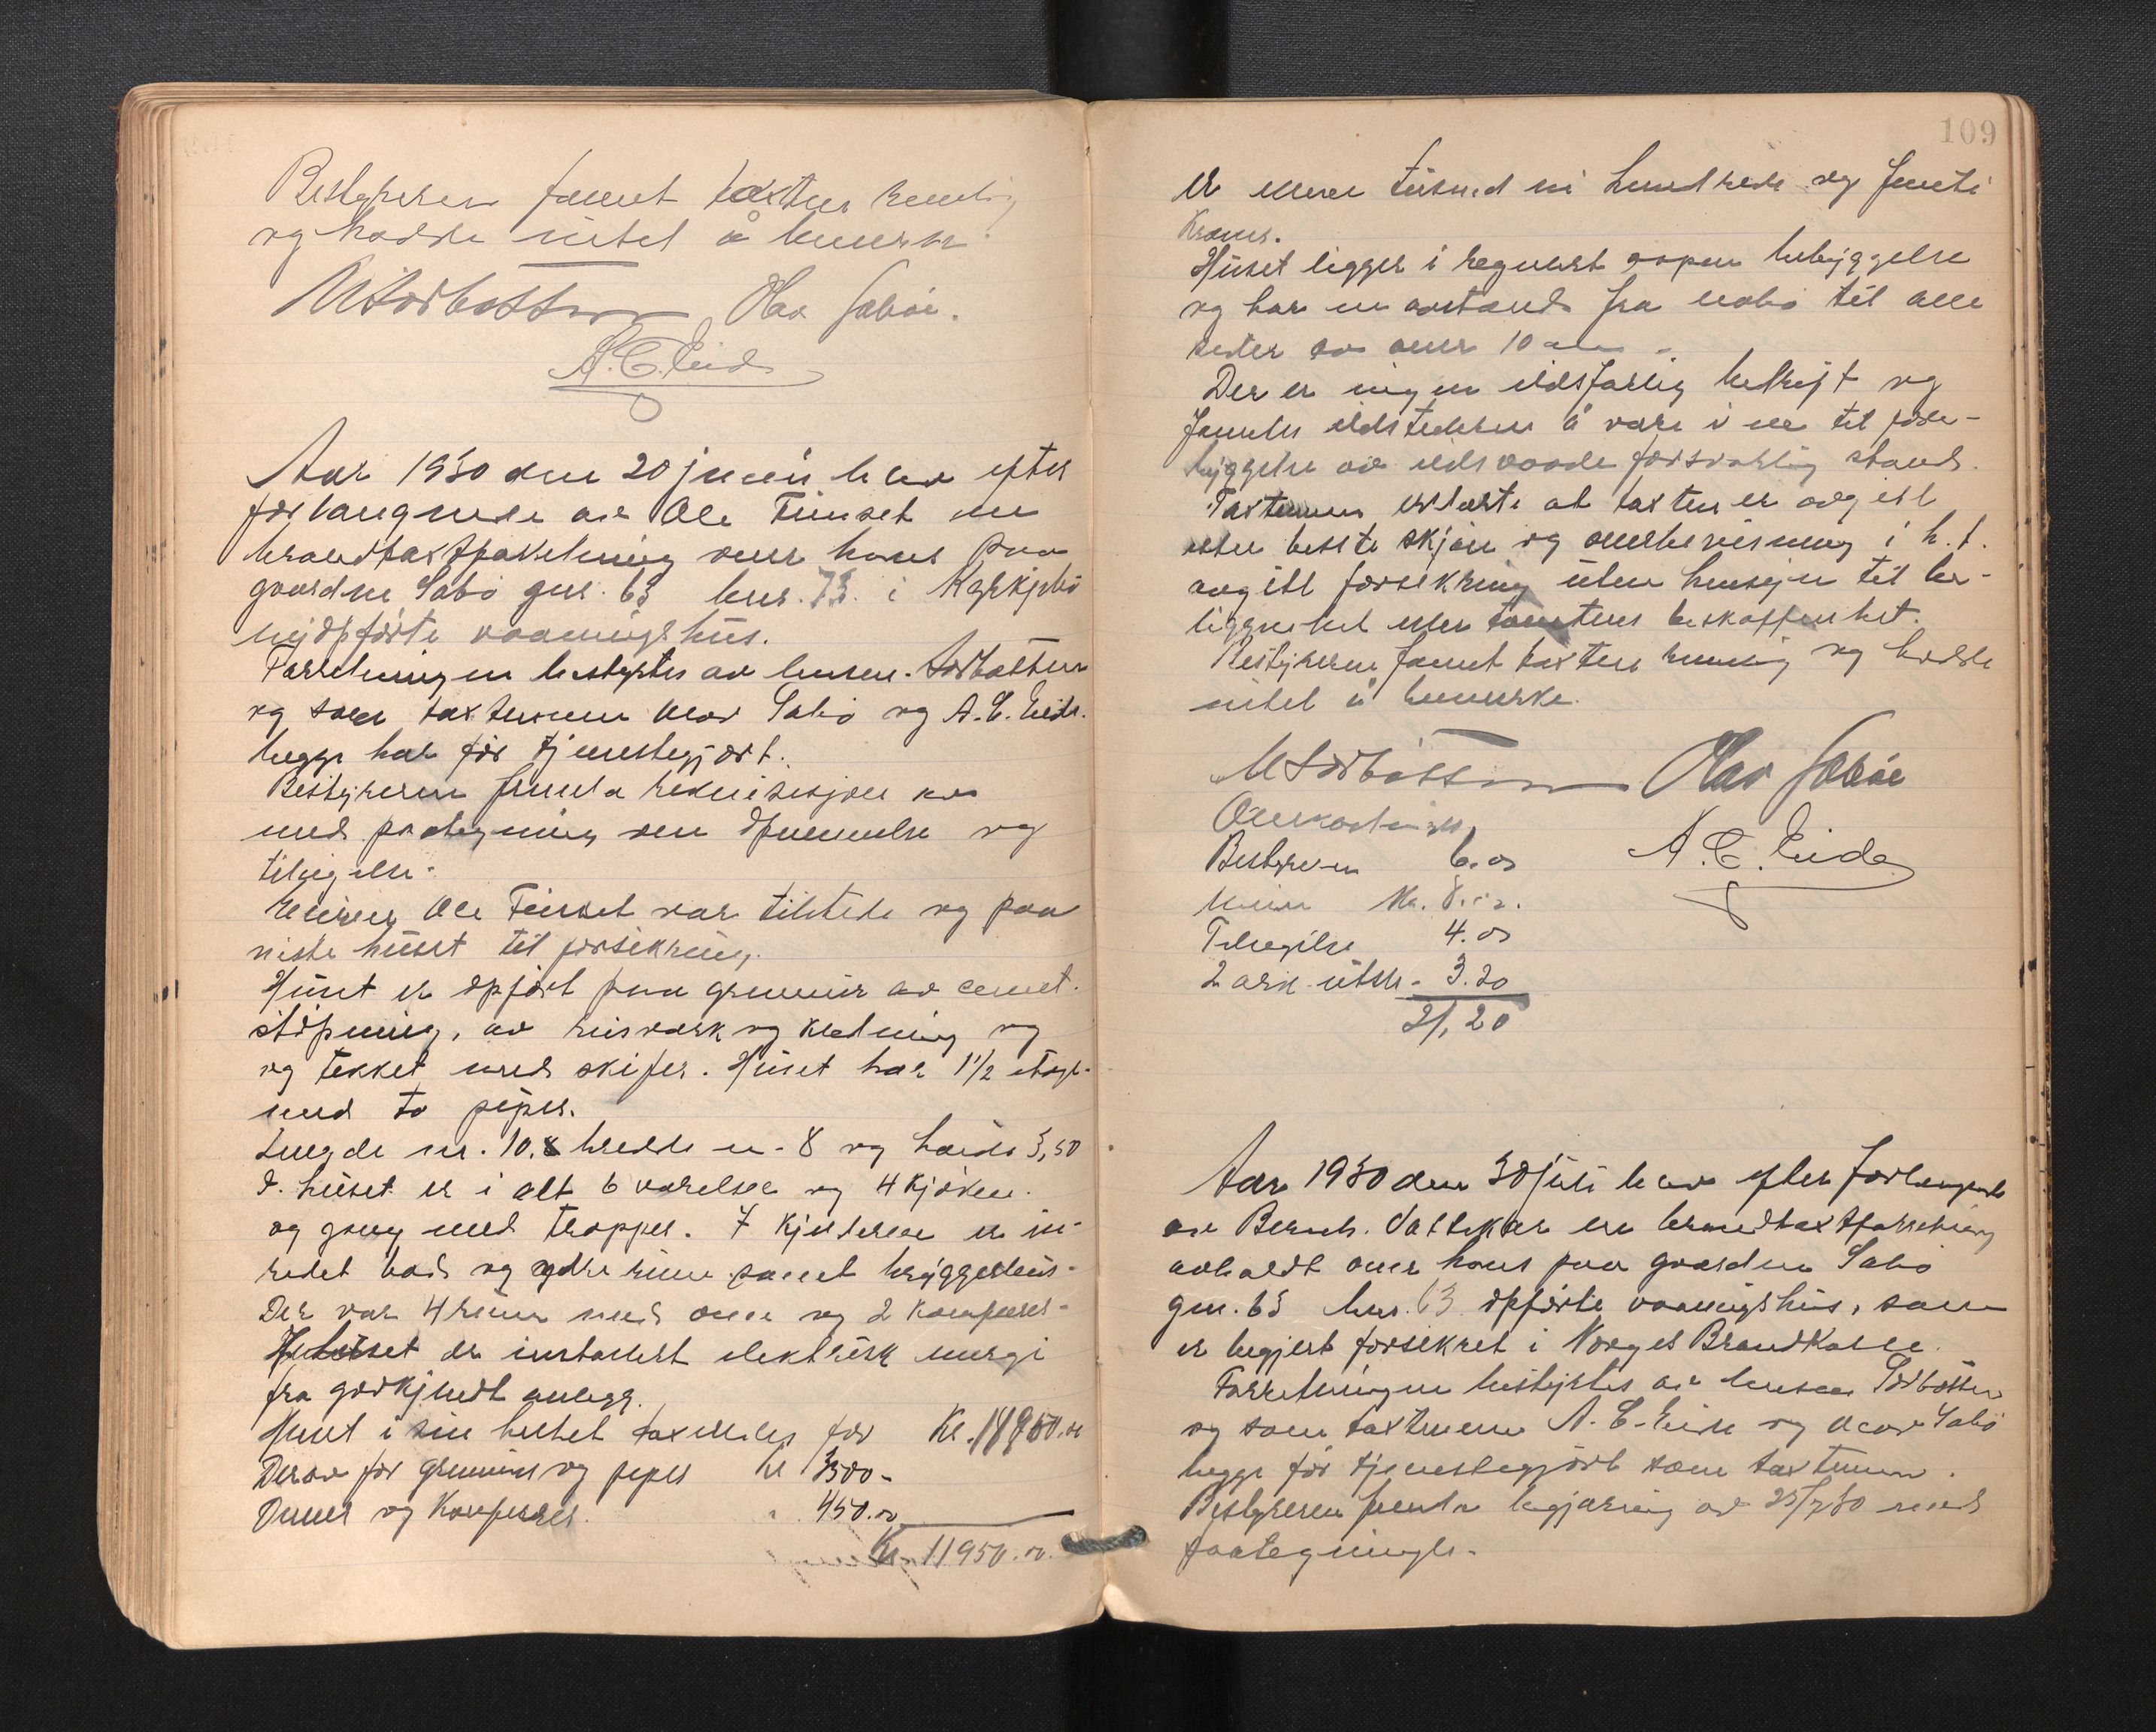 Bestyreren fannt taxten rimelig
og hadde intet å bemerke.
M Sorbotten Olav Sæböe.
A. C. Eide
Aar 1930 den 20 juni blev efter
forlangende av Ole Finset en
brandtaxtforretning over hans paa
gaarden Sæbö gnr. 63 bnr. 73. i
nyopförte vaaningshus.
Forretningen bestyrtes av lensm. Sorbotten
og som taxtmenn Olav Sæbö og A. C. Eide.
begge har för tjenestegjort.
Bestyreren fremla rekvisisjon
med paategning om opnevnelse og
tilsigelse.
Eieren Ole Finset var tilstede og paa
viste huset til forsikring.
Huset er opfört paa grunnmur av cement
stöpning, av reisverk og kledning og
og tekket med skifer. Huset har 1 1/2 etage
med to piper.
Lengde m. 10. bredde m. 8 og höide 3,50
I huset er i alt 6 værelser og 4 kjöken.
og gang med trapper. I kjelderen er in-
redet bad og andre rum samt bryggerhus.
Der var 4 rum med ovn og 2 komfurer.
I huset er installert elektrisk energi
fra godkjendt anlegg.
Huset i sin helhet taxeres for Kr. 11950.00
Derav for grunnmur og piper kr 3500-
Ovner og Komfurer. " 450.00
Kr. 11950.00.
109
elleve tusend ni hundrede og femti
Kroner.
Huset ligger i regulert open bebyggelse
og har en avstand fra nabo til alle
sider av over 10 m.
Der er ingen ildsfarlig bedrift og
fanntes ildstederne å være i en til fore-
byggelse av ildsvaade forsvarlig stand.
Taxtmenn erklærte at taxten er avgitt
efter beste skjön og overbevisning i h. t.
avgitt forsikring uten hensyn til be-
liggenhet eller tomtens beskaffenhet.
Bestyreren fannt taxten rimelig og hadde
intet å bemerke.
M Sorbotten Olav Sæböe
Omkostninger A. C. Eide
Bestyreren 6.00
Menn Kr. 8.00.
Tilsigelse 4.00
2 ark utskr. 3.20
21,20
Aar 1930 den 30 juli blev efter forlangende
av Bernh. Vattekar en brandtaxtforretning
avholdt over hans paa gaarden Sæbö
gnr. 63 bnr. 63 opförte vaaningshus, som
er begjert forsikret i Norges Brandkasse.
Forretningen bestyrtes av lensm. Sorbotten
og som taxtmenn A. C. Eide og Olav Sæbö
begge för tjenestegjort som taxtmenn.
Bestyreren fremla begjæring av 25/7 30 med
paategninger.